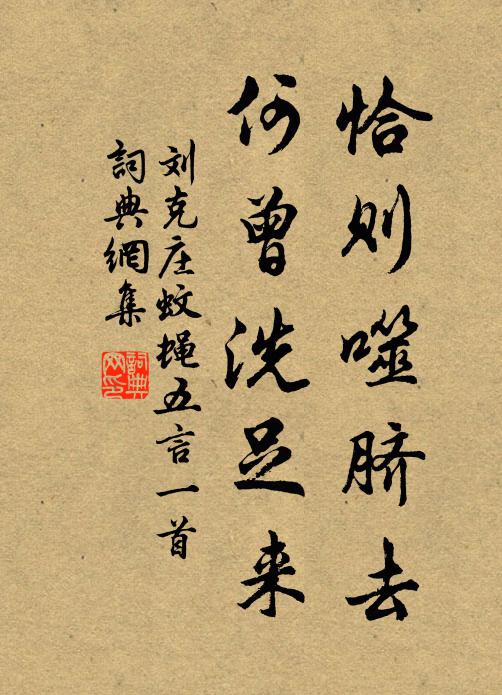 恰则噬脐去
何曾洗足来
刘克庄蚊蝇五言一首
詞典網集
詞典網印